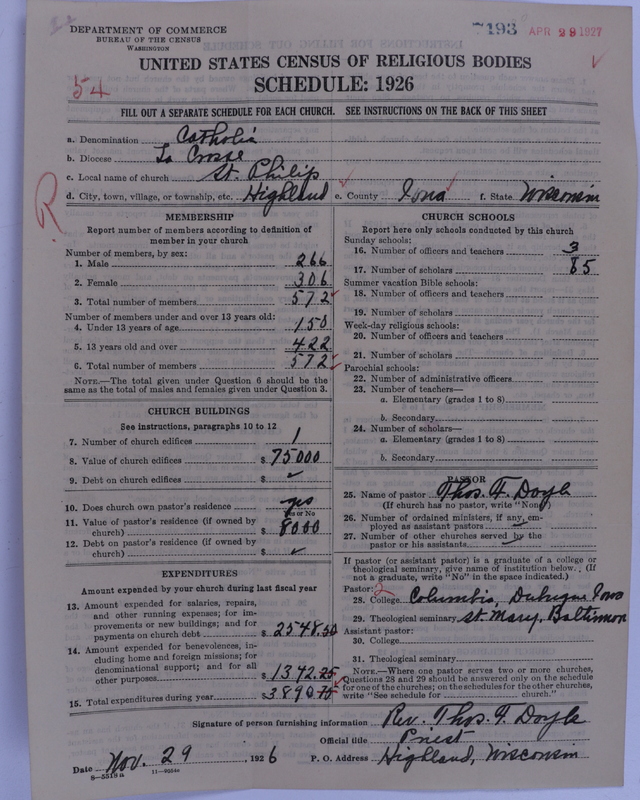 DEPARTMENT OF COMMERCE
BUREAU OF THE CENSUS
WASHINGTON
7193 APR 28 1927
UNITED STATES CENSUS OF RELIGIOUS BODIES
SCHEDULE: 1926
54
FILL OUT A SEPARATE SCHEDULE FOR EACH CHURCH. SEE INSTRUCTIONS ON THE BACK OF THIS SHEET
a. Denomination Catholic
b. Diocese La Crosse
c. Local name of church St. Philip
d. City, town, village, or township, etc. Highland e. County Iowa f. State Wisconsin
R
MEMBERSHIP
Report number of members according to definition of
member in your church
Number of members, by sex:
1. Male 266
2. Female 306
3. Total number of members 572
Number of members under and over 13 years old:
4. Under 13 years of age 150
5. 13 years old and over 422
6. Total number of members 572
NOTE.—The total given under Question 6 should be the
same as the total of males and females given under Question 3.
CHURCH BUILDINGS
See instructions, paragraphs 10 to 12
7. Number of church edifices 1
8. Value of church edifices $ 75000
9. Debt on church edifices $ ✓
10. Does church own pastor's residence yes
Yes or No
11. Value of pastor's residence (if owned by
church) $ 8000
12. Debt on pastor's residence (if owned by
church) $ ✓
EXPENDITURES
Amount expended by your church during last fiscal year
13. Amount expended for salaries, repairs,
and other running expenses; for im-
provements or new buildings; and for
payments on church debt $ 2548.50
14. Amount expended for benevolences, in-
cluding home and foreign missions; for
denominational support; and for all
other purposes $ 1342.25
15. Total expenditures during year $ 3890.75
CHURCH SCHOOLS
Report here only schools conducted by this church
Sunday schools:
16. Number of officers and teachers 3
17. Number of scholars 85
Summer vacation Bible schools:
18. Number of officers and teachers
19. Number of scholars
Week-day religious schools:
20. Number of officers and teachers
21. Number of scholars
Parochial schools:
22. Number of administrative officers
23. Number of teachers—
a. Elementary (grades 1 to 8)
b. Secondary
24. Number of scholars—
a. Elementary (grades 1 to 8)
b. Secondary
PASTOR
25. Name of pastor Thos. F. Doyle
(If church has no pastor, write "None")
26. Number of ordained ministers, if any, em-
ployed as assistant pastors
27. Number of other churches served by the
pastor or his assistants
If pastor (or assistant pastor) is a graduate of a college or
theological seminary, give name of institution below. (If
not a graduate, write "No" in the space indicated.)
Pastor: 2
28. College Columbia, Dubuque Iowa
29. Theological seminary St. Mary, Baltimore
Assistant pastor:
30. College
31. Theological seminary
NOTE.—Where one pastor serves two or more churches,
Questions 28 and 29 should be answered only on the schedule
for one of the churches; on the schedules for the other churches,
write "See schedule for church."
Signature of person furnishing information Rev. Thos. F. Doyle
Official title Priest
Date Nov. 29, 1926 P. O. Address Highland, Wisconsin
8—5518a 11—9204a